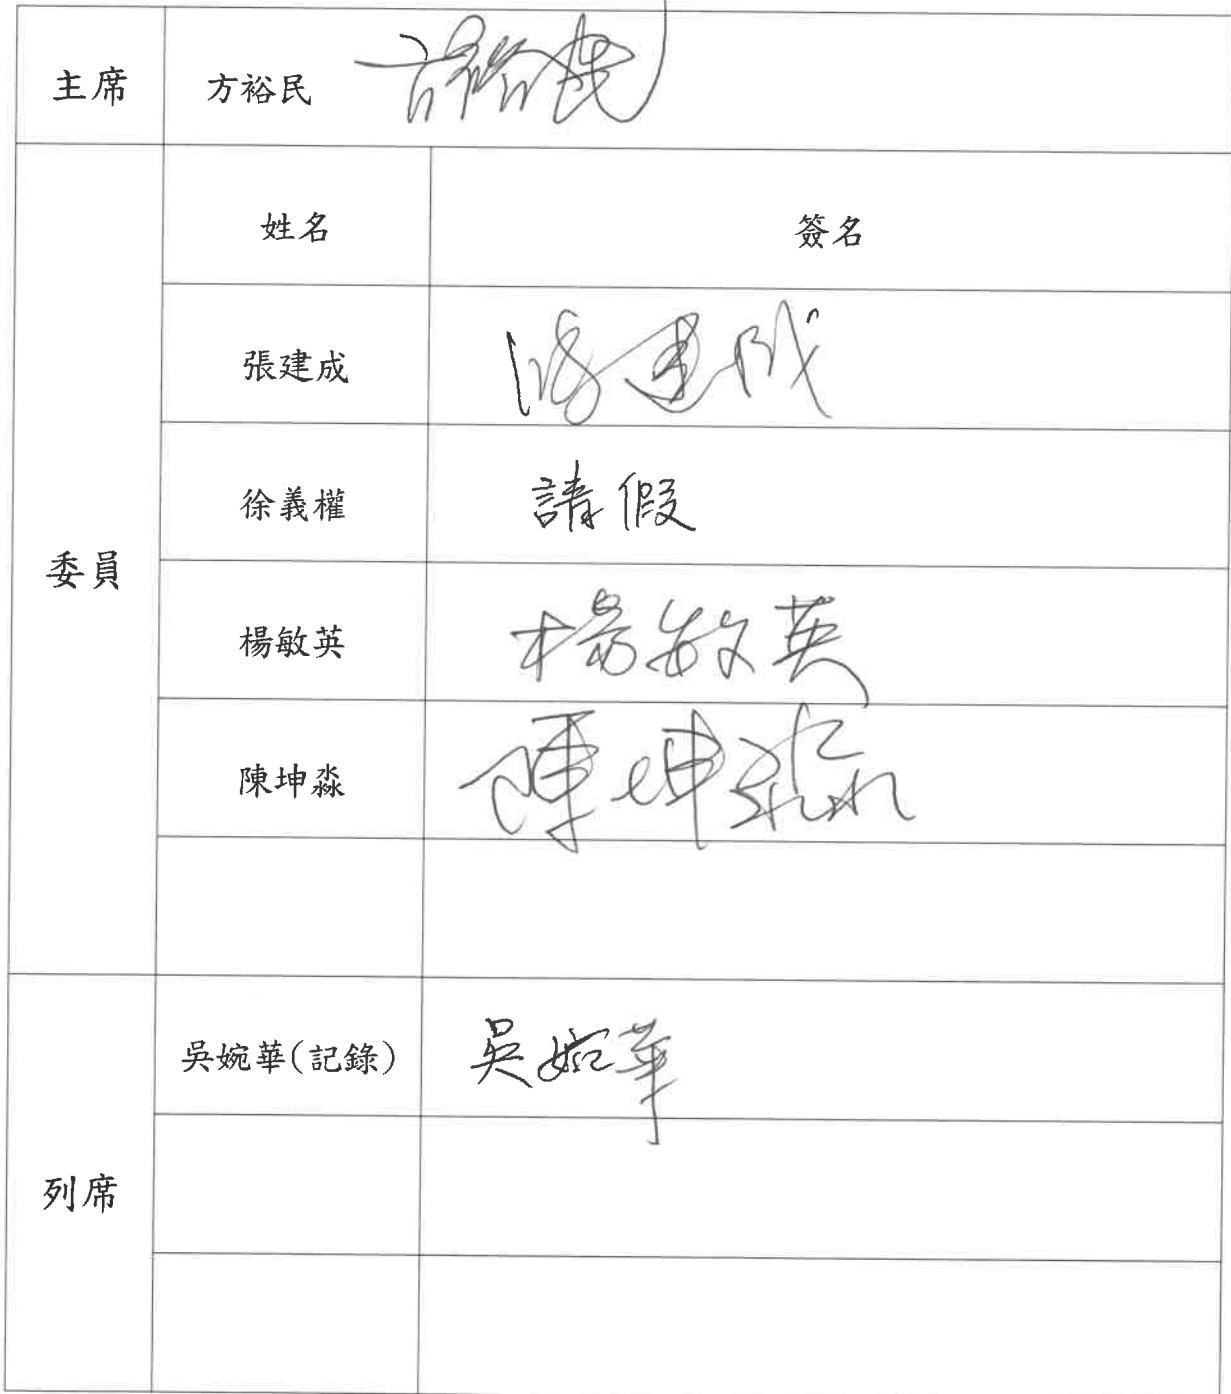 主席 方裕民 方裕民
姓名 簽名
張建成 張建成
徐義權 請假
委員
楊敏英 楊敏英
陳坤淼 陳坤淼
吳婉華(記錄) 吳婉華
列席